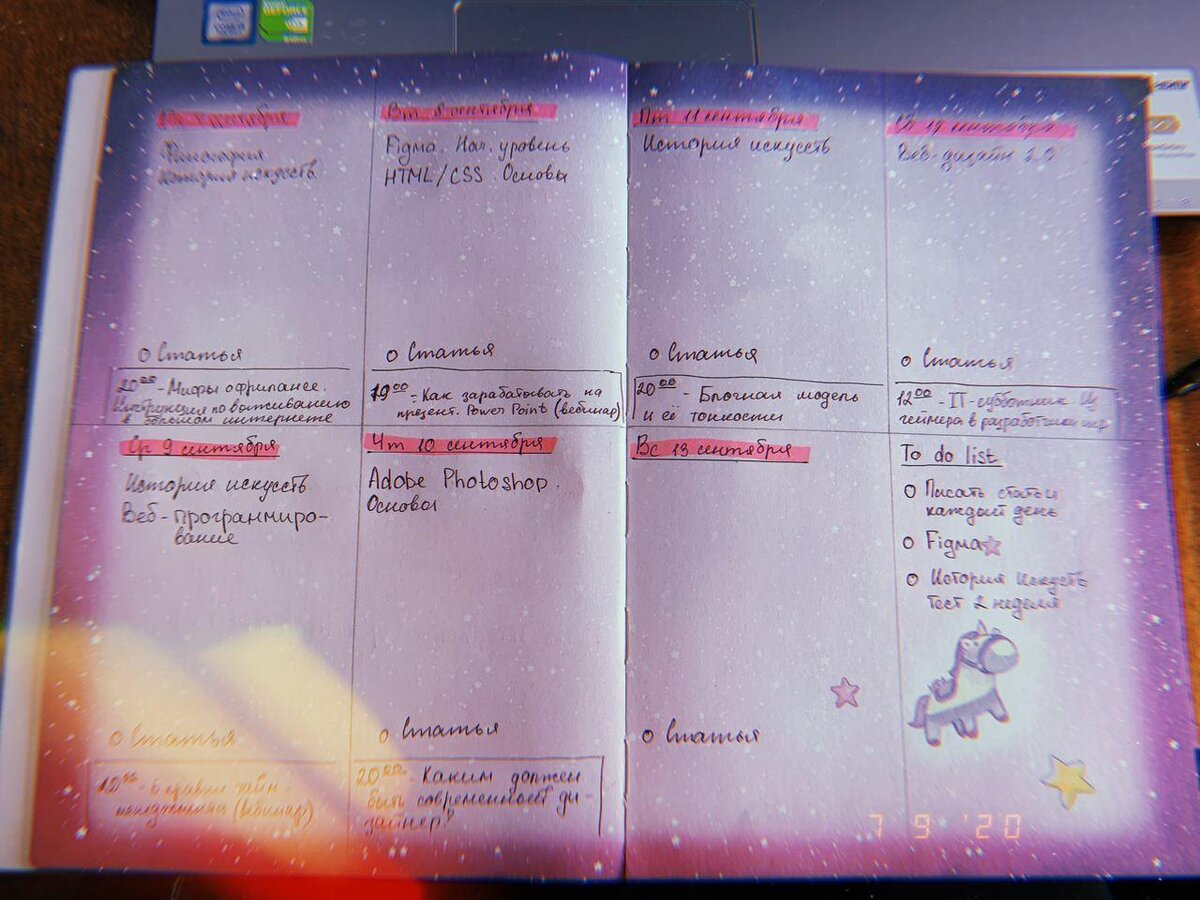 Пн 7 сентября
Философия
История искусств
о Статья
20⁰⁰ - Мифы о фрилансе.
Инструкция по выживанию
в большом интернете
Вт 8 сентября
Figma. Нач. уровень
HTML/CSS. Основы
о Статья
19⁰⁰ - Как зарабатывать на
презент. Power Point (вебинар)
Ср 9 сентября
История искусств
Веб-программиро-
вание
о Статья
19⁰⁰ - 6 правил тайм-
менеджмента (вебинар)
Чт 10 сентября
Adobe Photoshop.
Основы
о Статья
20⁰⁰ - Каким должен
быть современный ди-
зайнер?
Пт 11 сентября
История искусств
о Статья
20⁰⁰ - Блочная модель
и её тонкости
Вс 13 сентября
о Статья
сентября
Веб-дизайн 2.0
о Статья
12⁰⁰ - IT-субботник. Из
геймера в разработчики игр
To do list
о Писать статьи
каждый день
о Figma
о История искусств
тест 2 неделя
7 9 '20